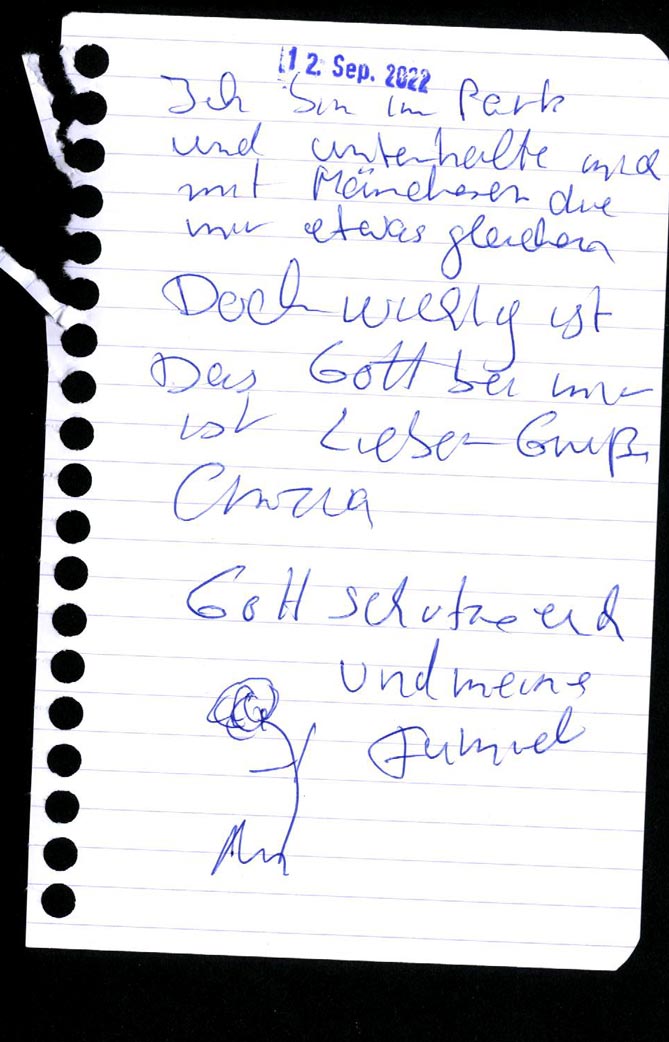 12. Sep. 2022
Ich bin im Park
und unterhalte mich
mit Mänchesen die
mir etwas gleichen
Doch wichtig ist
Das Gott bei mir
ist Lieben Gruß
Gott schutze euch
und meine